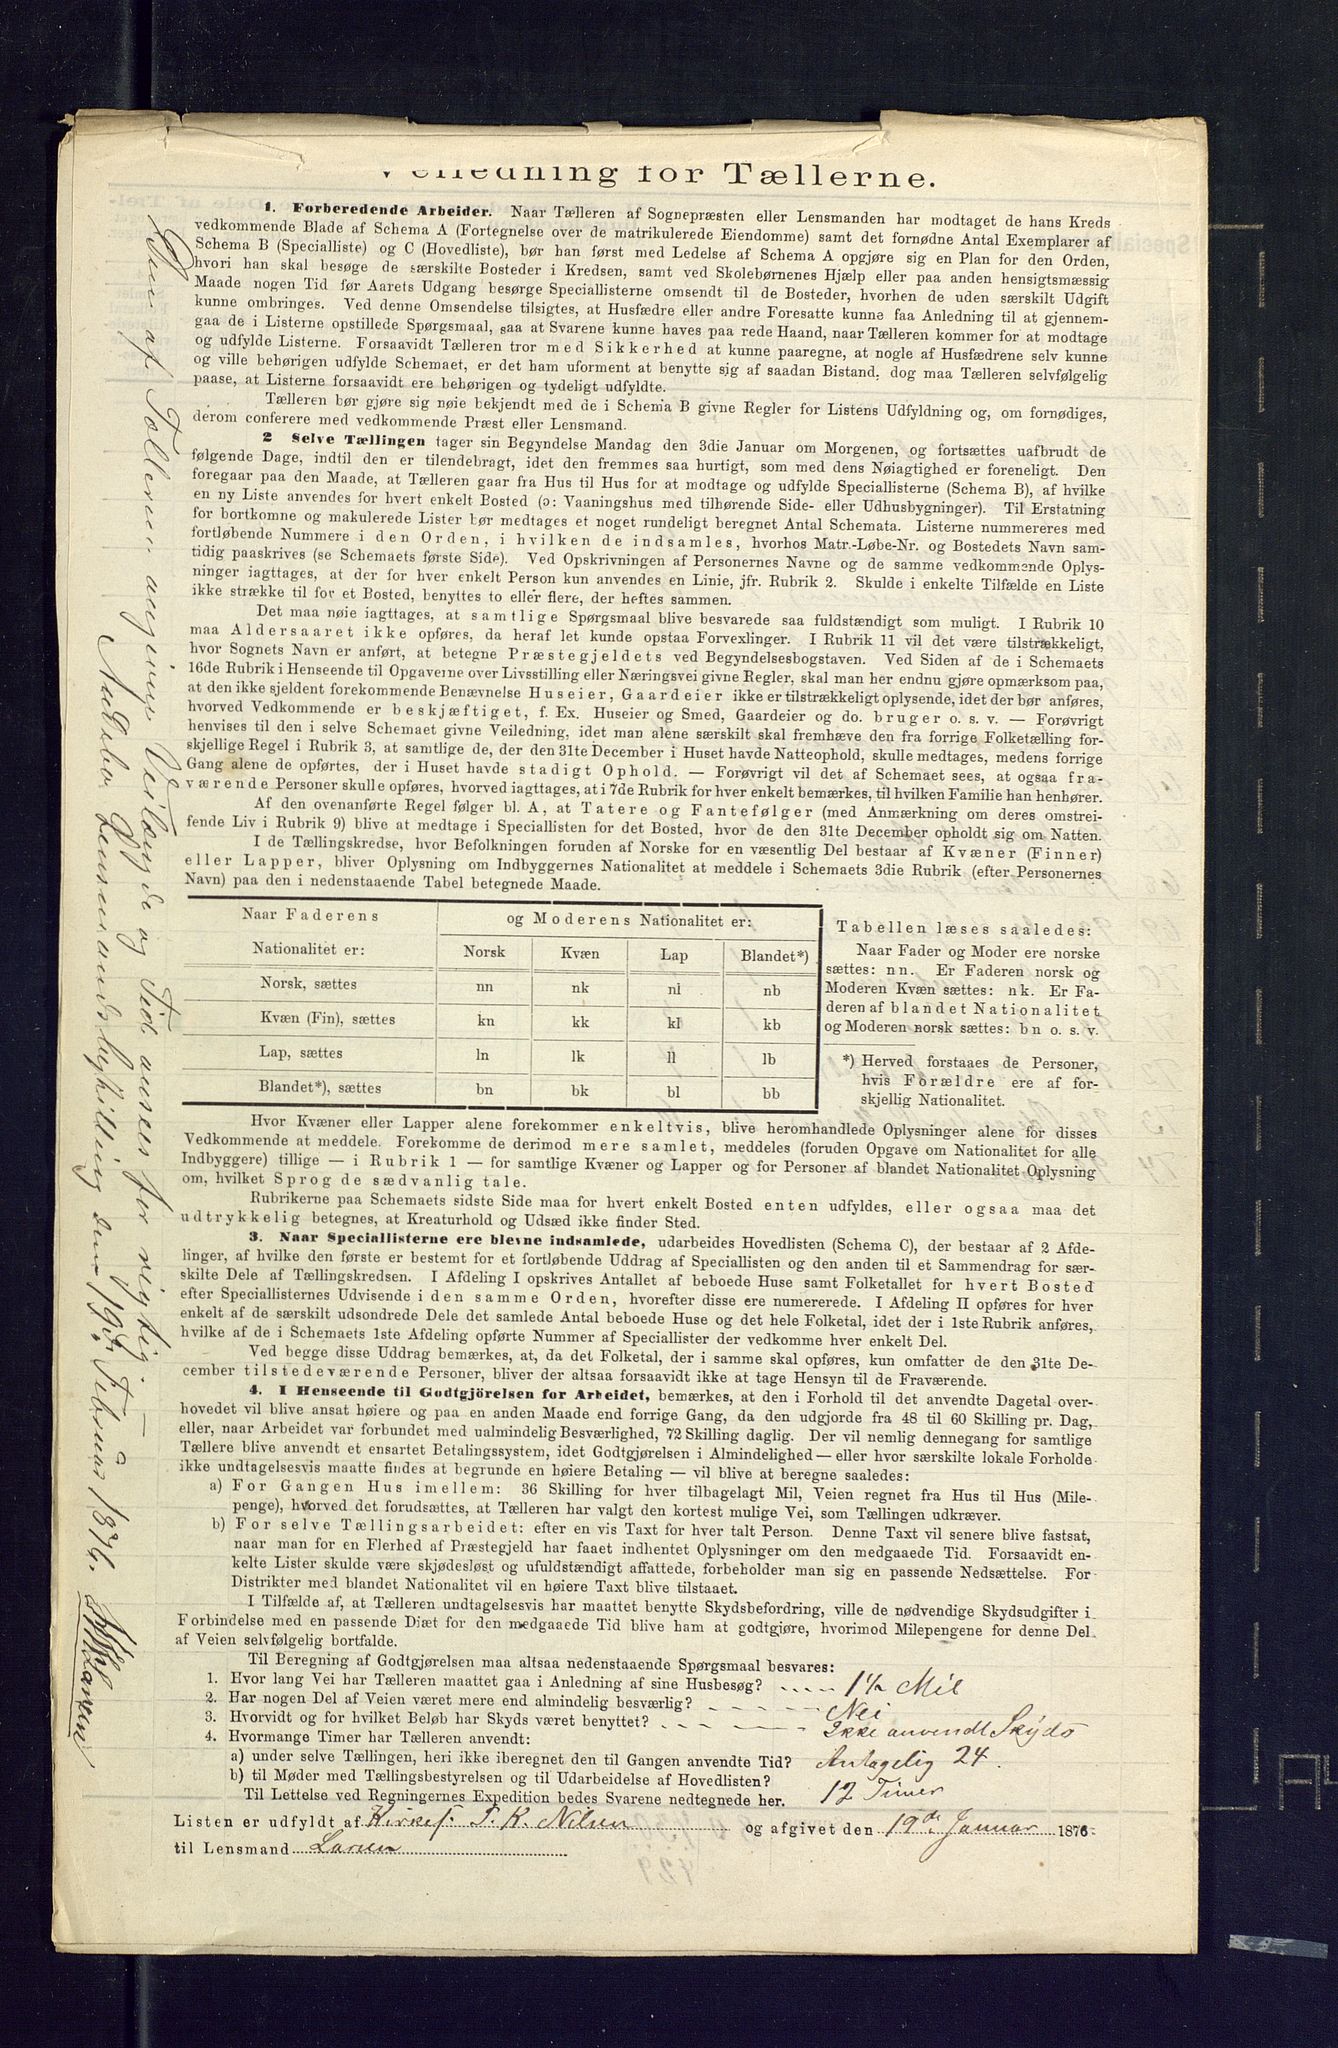 Veiledning for Tællerne.
1. Forberedende Arbeider. Naar Tælleren af Sognepræsten eller Lensmanden har modtaget de hans Kreds
vedkommende Blade af Schema A (Fortegnelse over de matrikulerede Eiendomme) samt det fornødne Antal Exemplarer af
Schema B (Specialliste) og C (Hovedliste), bør han først med Ledelse af Schema A opgjøre sig en Plan for den Orden,
hvori han skal besøge de særskilte Bosteder i Kredsen, samt ved Skolebørnenes Hjælp eller paa anden hensigtsmæssig
Maade nogen Tid før Aarets Udgang besørge Speciallisterne omsendt til de Bosteder, hvorhen de uden særskilt Udgift
kunne ombringes. Ved denne Omsendelse tilsigtes, at Husfædre eller andre Foresatte kunne faa Anledning til at gjennem-
gaa de i Listerne opstillede Spørgsmaal, saa at Svarene kunne haves paa rede Haand, naar Tælleren kommer for at modtage
og udfylde Listerne. Forsaavidt Tælleren tror med Sikkerhed at kunne paaregne, at nogle af Husfædrene selv kunne
og ville behørigen udfylde Schemaet, er det ham uforment at benytte sig af saadan Bistand, dog maa Tælleren selvfølgelig
paase, at Listerne forsaavidt ere behørigen og tydeligt udfyldte.
Tælleren bør gjøre sig nøie bekjendt med de i Schema B givne Regler for Listens Udfyldning og, om fornødiges,
derom conferere med vedkommende Præst eller Lensmand.
2 Selve Tællingen tager sin Begyndelse Mandag den 3die Januar om Morgenen, og fortsættes uafbrudt de
følgende Dage, indtil den er tilendebragt, idet den fremmes saa hurtigt, som med dens Nøiagtighed er foreneligt. Den
foregaar paa den Maade, at Tælleren gaar fra Hus til Hus for at modtage og udfylde Speciallisterne (Schema B), af hvilke
en ny Liste anvendes for hvert enkelt Bosted (ɔ: Vaaningshus med tilhørende Side- eller Udhusbygninger). Til Erstatning
for bortkomne og makulerede Lister bør medtages et noget rundeligt beregnet Antal Schemata. Listerne nummereres med
fortløbende Nummere i den Orden, i hvilken de indsamles, hvorhos Matr.-Løbe-Nr. og Bostedets Navn sam-
tidig paaskrives (se Schemaets første Side). Ved Opskrivningen af Personernes Navne og de samme vedkommende Oplys-
ninger iagttages, at der for hver enkelt Person kun anvendes en Linie, jfr. Rubrik 2. Skulde i enkelte Tilfælde en Liste
ikke strække til for et Bosted, benyttes to eller flere, der heftes sammen.
Det maa nøie iagttages, at samtlige Spørgsmaal blive besvarede saa fuldstændigt som muligt. I Rubrik 10
maa Aldersaaret ikke opføres, da heraf let kunde opstaa Forvexlinger. I Rubrik 11 vil det være tilstrækkeligt,
hvor Sognets Navn er anført, at betegne Præstegjeldets ved Begyndelsesbogstaven. Ved Siden af de i Schemaets
16de Rubrik i Henseende til Opgaverne over Livsstilling eller Næringsvei givne Regler, skal man her endnu gjøre opmærksom paa,
at den ikke sjeldent forekommende Benævnelse Huseier, Gaardeier ikke er tilstrækkeligt oplysende, idet der bør anføres,
hvorved Vedkommende er beskjæftiget, f. Ex. Huseier og Smed, Gaardeier og do. bruger o. s. v. — Forøvrigt
henvises til den i selve Schemaet givne Veiledning, idet man alene særskilt skal fremhæve den fra forrige Folketælling for-
skjellige Regel i Rubrik 3, at samtlige de, der den 31te December i Huset havde Natteophold, skulle medtages, medens forrige
Gang alene de opførtes, der i Huset havde stadigt Ophold. — Forøvrigt vil det af Schemaet sees, at ogsaa fra-
værende Personer skulle opføres, hvorved iagttages, at i 7de Rubrik for hver enkelt bemærkes, til hvilken Familie han henhører.
Af den ovenanførte Regel følger bl. A, at Tatere og Fantefølger (med Anmærkning om deres omstrei-
fende Liv i Rubrik 9) blive at medtage i Speciallisten for det Bosted, hvor de den 31te December opholdt sig om Natten.
I de Tællingskredse, hvor Befolkningen foruden af Norske for en væsentlig Del bestaar af Kvæner (Finner)
eller Lapper, bliver Oplysning om Indbyggernes Nationalitet at meddele i Schemaets 3die Rubrik (efter Personernes
Navn) paa den i nedenstaaende Tabel betegnede Maade.
Naar Faderens og Moderens Nationalitet er:
Nationalitet er: Norsk Kvæn Lap Blandet*)
Norsk, sættes nn nk nl nb
Kvæn (Fin), sættes kn kk kl kb
Lap, sættes ln lk ll lb
Blandet*), sættes bn bk bl bb
Tabellen læses saaledes:
Naar Fader og Moder ere norske
sættes: nn. Er Faderen norsk og
Moderen Kvæn sættes: nk. Er Fa-
deren af blandet Nationalitet
og Moderen norsk sættes: bn o. s. v.
*) Herved forstaaes de Personer,
hvis Forældre ere af for-
skjellig Nationalitet.
Hvor Kvæner eller Lapper alene forekommer enkeltvis, blive heromhandlede Oplysninger alene for disses
Vedkommende at meddele. Forekomme de derimod mere samlet, meddeles (foruden Opgave om Nationalitet for alle
Indbyggere) tillige — i Rubrik 1 — for samtlige Kvæner og Lapper og for Personer af blandet Nationalitet Oplysning
om, hvilket Sprog de sædvanlig tale.
Rubrikerne paa Schemaets sidste Side maa for hvert enkelt Bosted enten udfyldes, eller ogsaa maa det
udtrykkelig betegnes, at Kreaturhold og Udsæd ikke finder Sted.
3. Naar Speciallisterne ere blevne indsamlede, udarbeides Hovedlisten (Schema C), der bestaar af 2 Afde-
linger, af hvilke den første er bestemt for et fortløbende Uddrag af Speciallisten og den anden til et Sammendrag for sær-
skilte Dele af Tællingskredsen. I Afdeling I opskrives Antallet af beboede Huse samt Folketallet for hvert Bosted
efter Speciallisternes Udvisende i den samme Orden, hvorefter disse ere numererede. I Afdeling II opføres for hver
enkelt af de særskilt udsondrede Dele det samlede Antal beboede Huse og det hele Folketal, idet der i 1ste Rubrik anføres,
hvilke af de i Schemaets 1ste Afdeling opførte Nummer af Speciallister der vedkomme hver enkelt Del.
Ved begge disse Uddrag bemærkes, at, da det Folketal, der i samme skal opføres, kun omfatter de den 31te De-
cember tilstedeværende Personer, bliver der altsaa forsaavidt ikke at tage Hensyn til de Fraværende.
4. I Henseende til Godtgjörelsen for Arbeidet, bemærkes, at den i Forhold til det anvendte Dagetal over-
hovedet vil blive ansat høiere og paa en anden Maade end forrige Gang, da den udgjorde fra 48 til 60 Skilling pr. Dag,
eller, naar Arbeidet var forbundet med ualmindelig Besværlighed, 72 Skilling daglig. Der vil nemlig dennegang for samtlige
Tællere blive anvendt et ensartet Betalingssystem, idet Godtgjørelsen i Almindelighed — eller hvor særskilte lokale Forholde
ikke undtagelsesvis maatte findes at begrunde en høiere Betaling — vil blive at beregne saaledes:
a) For Gangen Hus imellem: 36 Skilling for hver tilbagelagt Mil, Veien regnet fra Hus til Hus (Mile-
penge), hvorved det forudsættes, at Tælleren har valgt den kortest mulige Vei, som Tællingen udkræver.
b) For selve Tællingsarbeidet: efter en vis Taxt for hver talt Person. Denne Taxt vil senere blive fastsat,
naar man for en Flerhed af Præstegjeld har faaet indhentet Oplysninger om den medgaaede Tid. Forsaavidt en-
kelte Lister skulde være skjødesløst og ufuldstændigt affattede, forbeholder man sig en passende Nedsættelse. For
Distrikter med blandet Nationalitet vil en høiere Taxt blive tilstaaet.
I Tilfælde af, at Tælleren undtagelsesvis har maattet benytte Skydsbefordring, ville de nødvendige Skydsudgifter i
Forbindelse med en passende Diæt for den medgaaede Tid blive ham at godtgjøre, hvorimod Milepengene for denne Del
af Veien selvfølgelig bortfalde.
Til Beregning af Godtgjørelsen maa altsaa nedenstaaende Spørgsmaal besvares:
1. Hvor lang Vei har Tælleren maattet gaa i Anledning af sine Husbesøg? Mil
2. Har nogen Del af Veien været mere end almindelig besværlig? Nei
3. Hvorvidt og for hvilket Beløb har Skyds været benyttet? Ikke anvendt Skyds
4. Hvormange Timer har Tælleren anvendt:
a) under selve Tællingen, heri ikke iberegnet den til Gangen anvendte Tid? Antagelig 24.
b) til Møder med Tællingsbestyrelsen og til Udarbeidelse af Hovedlisten? 12 Timer
Til Lettelse ved Regningernes Expedition bedes Svarene nedtegnede her.
Listen er udfyldt af Kirkes. T. K. Nilsen og afgivet den 19de Januar 1876.
til Lensmand Larsen
Den af Tælleren angivne Veilængde og Tid ansees for rigtig. —
Lensmandsbestilling den 19de Februar 1876.
Larsen